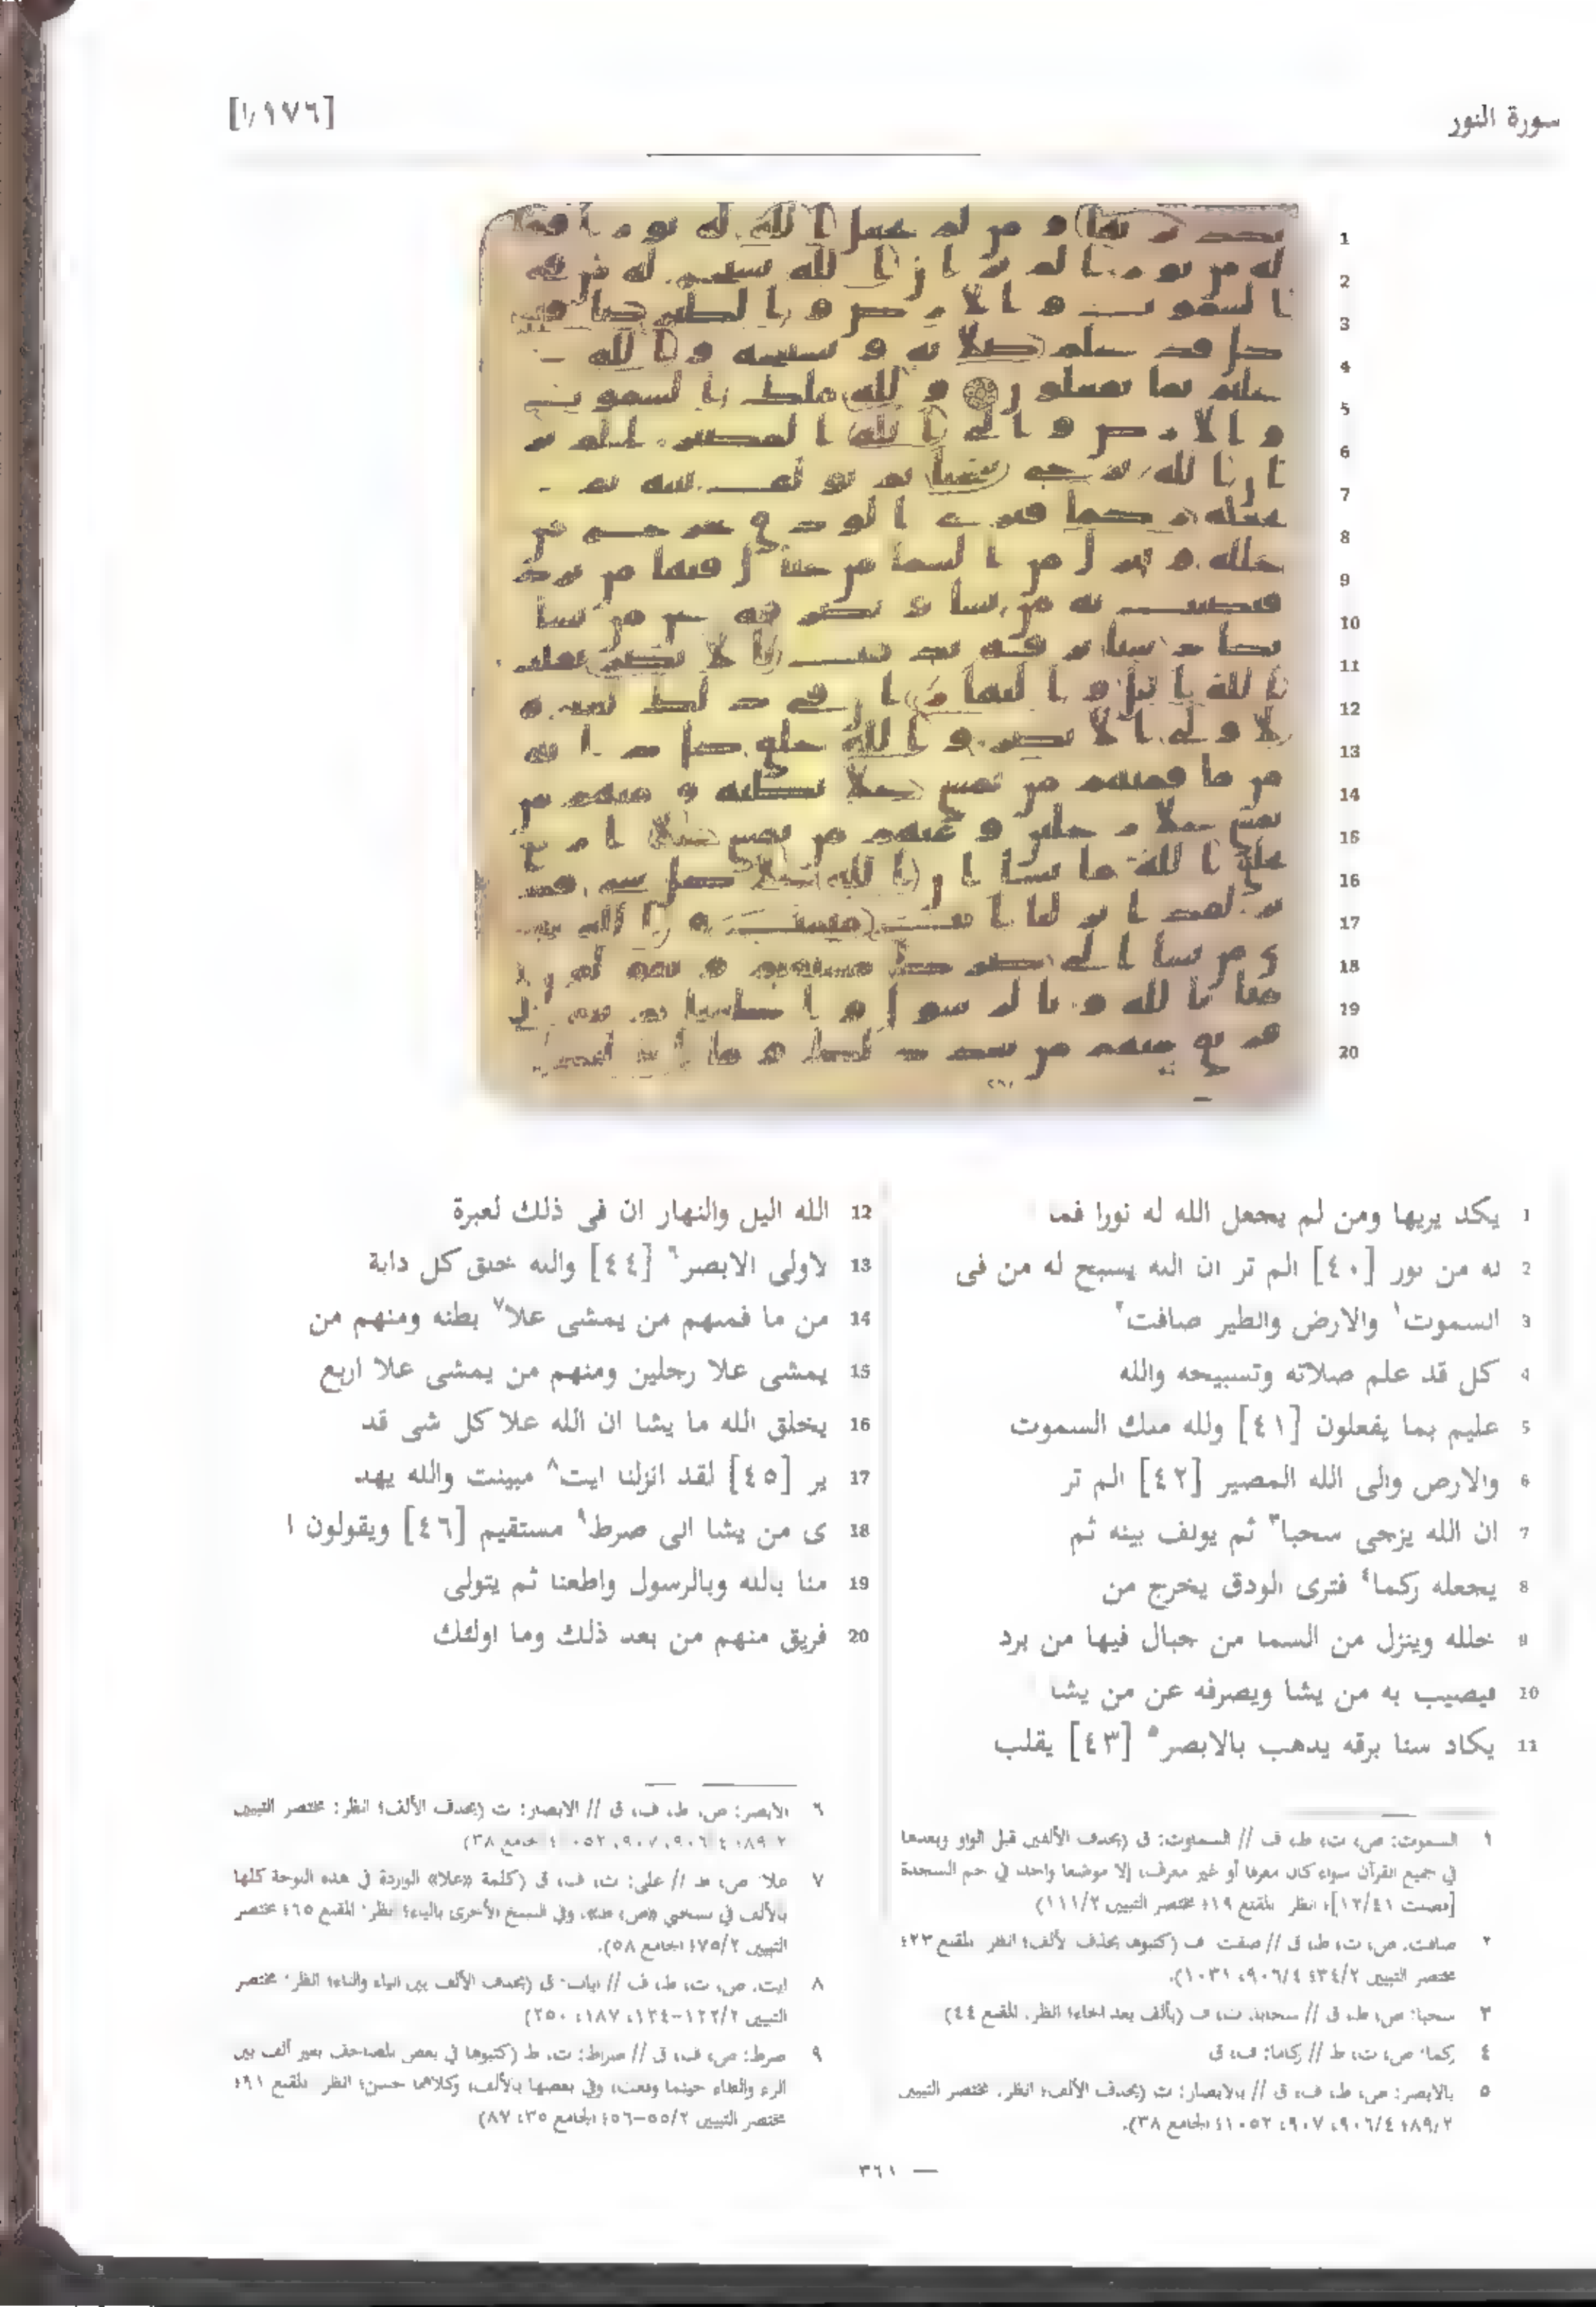 سورة النور
[١٧٦/أ]
1 يكد يريها ومن لم يجعل الله له نورا فما
2 له من نور [٤٠] الم تر ان الله يسبح له من فى
3 السموت١ والارض والطير صافت٢
4 كل قد علم صلاته وتسبيحه والله
5 عليم بما يفعلون [٤١] ولله ملك السموت
6 والارض والى الله المصير [٤٢] الم تر
7 ان الله يزجى سحبا٣ ثم يولف بينه ثم
8 يجعله ركما٤ فترى الودق يخرج من
9 خلله وينزل من السما من جبال فيها من برد
10 فيصيب به من يشا ويصرفه عن من يشا
11 يكاد سنا برقه يذهب بالابصر٥ [٤٣] يقلب
12 الله اليل والنهار ان فى ذلك لعبرة
13 لاولى الابصر٦ [٤٤] والله خلق كل دابة
14 من ما فمنهم من يمشى علا٧ بطنه ومنهم من
15 يمشى علا رجلين ومنهم من يمشى علا اربع
16 يخلق الله ما يشا ان الله علا كل شى قد
17 ير [٤٥] لقد انزلنا ايت٨ مبينت والله يهد
18 ى من يشا الى صرط٩ مستقيم [٤٦] ويقولون ا
19 منا بالله وبالرسول واطعنا ثم يتولى
20 فريق منهم من بعد ذلك وما اولئك
١ السموت: ص، ت، ط، ف // السماوت: ق (بحذف الألفين قبل الواو وبعدها
في جميع القرآن سواء كان معرفا أو غير معرف، إلا موضعا واحد، في حم السجدة
[فصلت ١٢/٤١]؛ انظر المقنع ١٩؛ مختصر التبيين ١١١/٢)
٢ صافت: ص، ت، ط، ق // صفت ف (كتبوها بحذف الألف؛ انظر المقنع ٢٣؛
مختصر التبيين ٣٤/٢؛ ٩٠٦/٤، ١٠٣١).
٣ سحبا: ص، ط، ق // سحابا: ت، ف (بألف بعد الحاء؛ انظر. المقنع ٤٤)
٤ ركما: ص، ت، ط // ركاما: ف، ق
٥ بالابصر: ص، ط، ف، ق // بالابصار: ت (بحذف الألف؛ انظر. مختصر التبيين
٨٩/٢؛ ٩٠٦/٤، ٩٠٧، ١٠٥٢؛ الجامع ٣٨).
٦ الابصر: ص، ط، ف، ق // الابصار: ت (بحذف الألف؛ انظر: مختصر التبيين
٨٩/٢؛ ٩٠٦/٤، ٩٠٧، ١٠٥٢؛ الجامع ٣٨)
٧ علا: ص، ط // على: ت، ف، ق (كلمة «علا» الواردة في هذه اللوحة كلها
بالألف في نسختي «ص، ط»، وفي النسخ الأخرى بالياء؛ انظر: المقنع ٦٥؛ مختصر
التبيين ٧٥/٢؛ الجامع ٥٨).
٨ ايت: ص، ت، ط، ف // ايات: ق (بحذف الألف بين الياء والتاء؛ انظر: مختصر
التبيين ١٢٢/٢-١٢٤، ١٨٧، ٢٥٠)
٩ صرط: ص، ف، ق // صراط: ت، ط (كتبوها في بعض المصاحف بغير ألف بين
الراء والطاء حيثما وقعت، وفي بعضها بالألف، وكلاهما حسن؛ انظر المقنع ٩١؛
مختصر التبيين ٥٥/٢-٥٦؛ الجامع ٣٥، ٨٧)
— ٣٦١